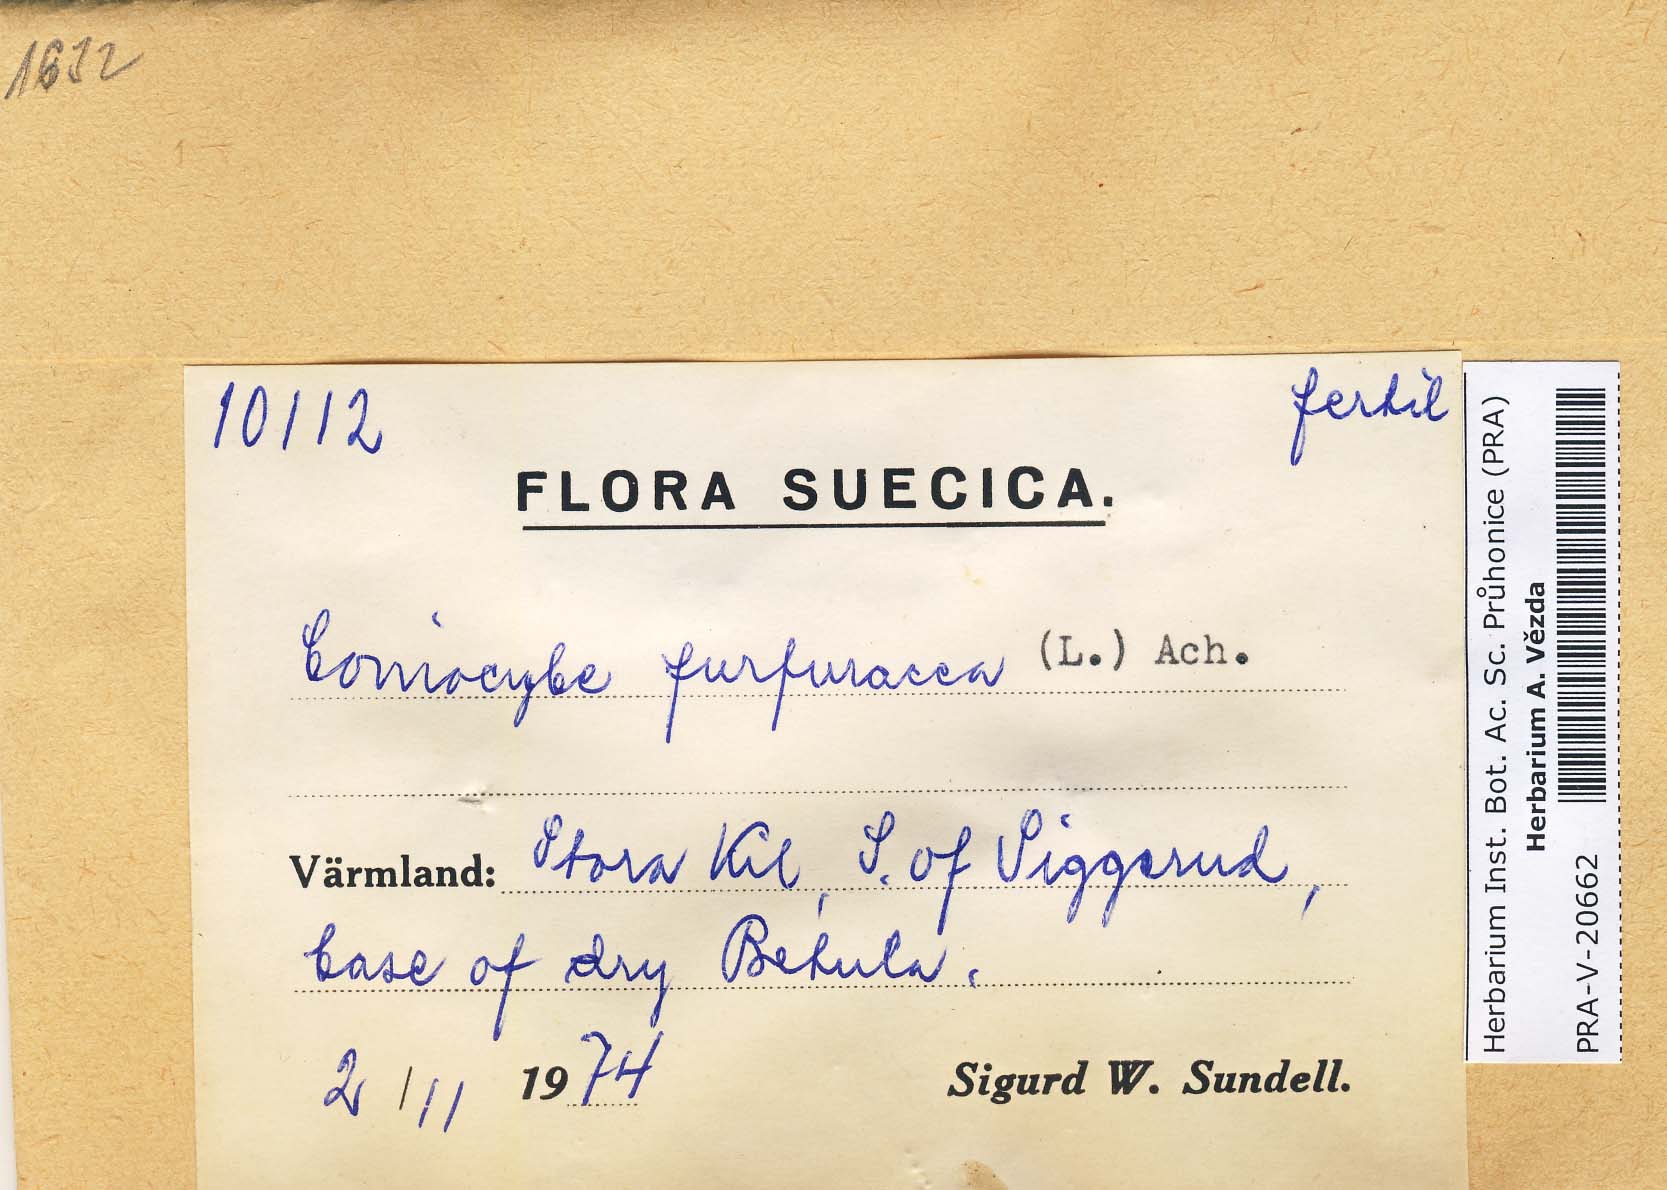 1632
10112 fertil
FLORA SUECICA.
Coniocybe furfuracea (L.) Ach.
Värmland: Stora Kil, S. of Siggerud,
base of dry Betula.
2/11 1974 Sigurd W. Sundell.
Herbarium Inst. Bot. Ac. Sc. Průhonice (PRA)
Herbarium A. Vězda
PRA-V-20662